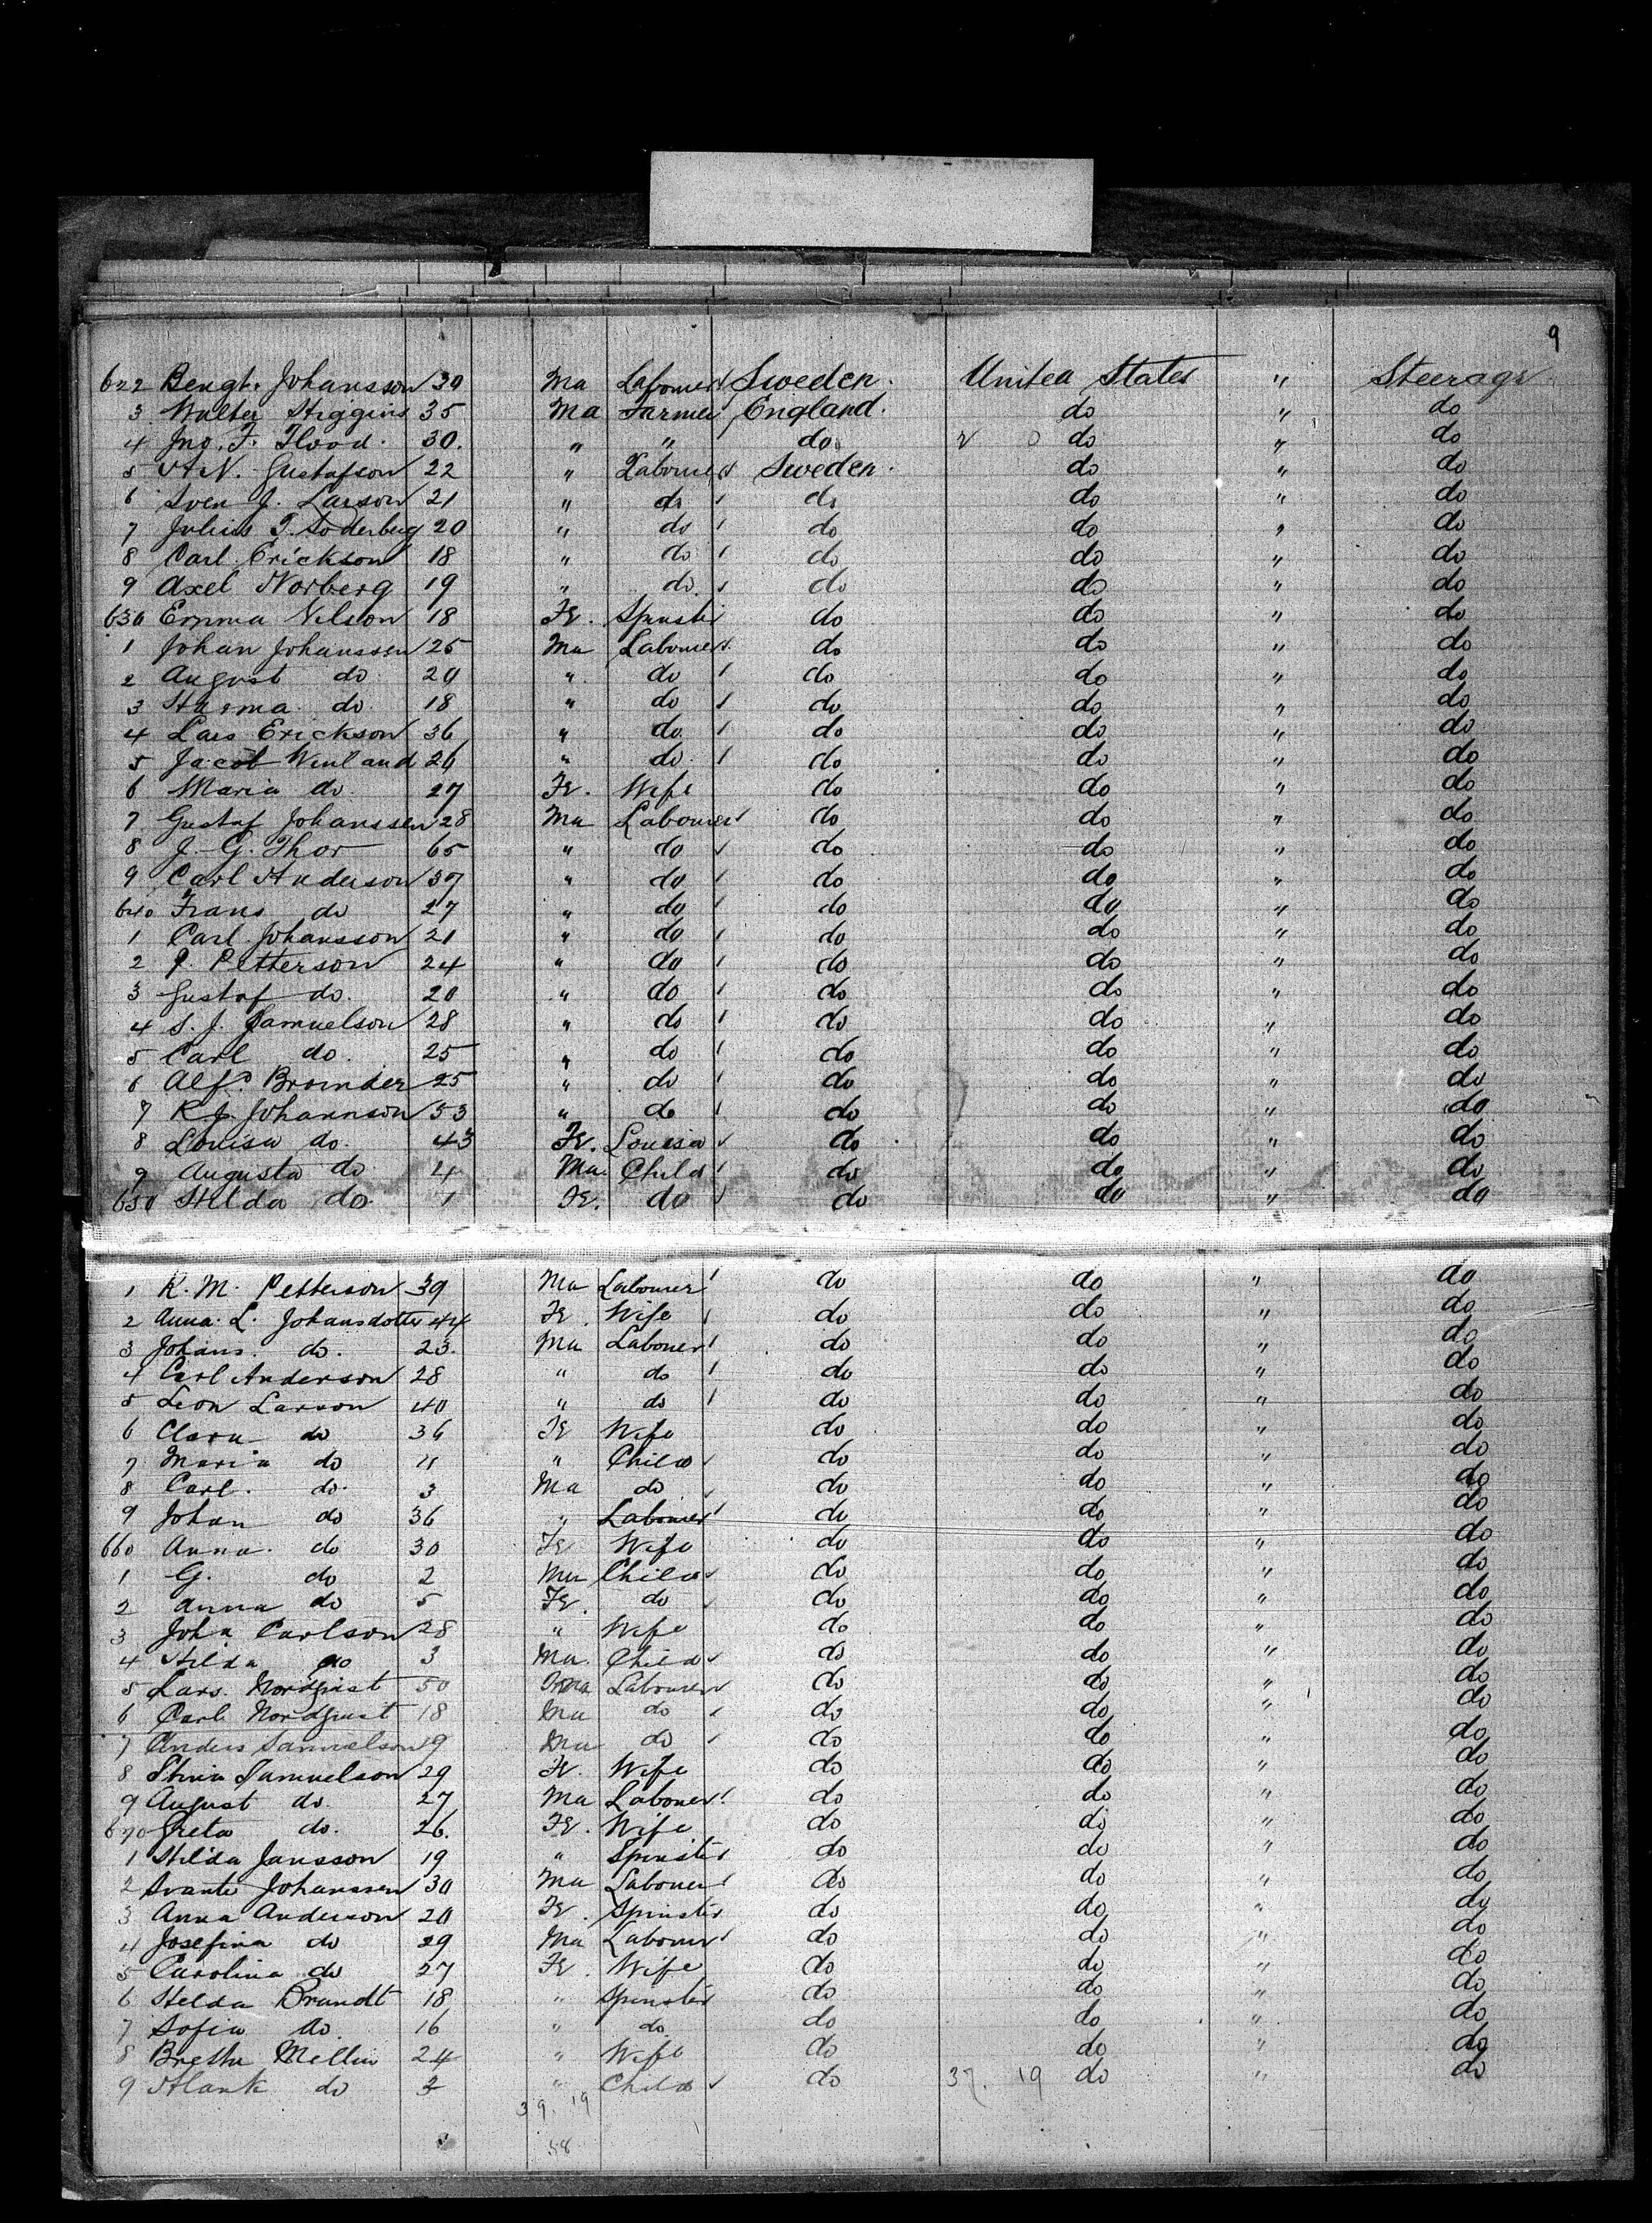 9
622 Bengt Johansson 39 Ma Labourer Sweden. United States " Steerage
3 Walter Higgins 35 Ma Farmer England. do " do
4 Jno. F. Flood. 30. " " do do " do
5 A. N. Gustafson 22 " Labourer Sweden. do " do
6 Sven J. Larson 21 " do do do " do
7 Julius T. Soderberg 20 " do do do " do
8 Carl Erickson 18 " do do do " do
9 Axel Norberg 19 " do do do " do
630 Emma Nelson 18 Fe. Spinster do do " do
1 Johan Johanssen 25 Ma Labourer do do " do
2 August do 20 " do do do " do
3 Harma. do. 18 " do do do " do
4 Lars Erickson 36 " do. do do " do
5 Jacob Wenland 26 " do. do do " do
6 Maria do. 27 Fe. Wife do do " do
7 Gustaf Johanssen 28 Ma Labourer do do " do
8 J. G. Thor 65 " do do do " do
9 Carl Anderson 37 " do do do " do
640 Frans do 27 " do do do " do
1 Carl Johansson 21 " do do do " do
2 P. Petterson 24 " do do do " do
3 Gustaf do. 20 " do do do " do
4 S. J. Samuelson 28 " do do do " do
5 Carl do. 25 " do do do " do
6 Alfd. Bromder 25 " do do do " do
7 K. J. Johannson 53 " do do do " do
8 Louisa do. 43 Fe. Louisa do do " do
9 Augusta do 4 Ma. Child do do " do
650 Hilda do. 1 Fe. do do do " do
1 K. M. Petterson 39 Ma Labourer do do " do
2 Anna. L. Johansdotter 44 Fe. Wife do do " do
3 Johans. do. 23. Ma Labourer do do " do
4 Carl Anderson 28 " do do do " do
5 Leon Larson 40 " do do do " do
6 Clara do 36 Fe Wife do do " do
7 Maria do 11 " Child do do " do
8 Carl. do. 3 Ma do do do " do
9 Johan do 36 " Labourer do do " do
660 Anna. do 30 Fe Wife do do " do
1 G. do 2 Ma Child do do " do
2 Anna do 5 Fe. do do do " do
3 Joha Carlson 28 " Wife do do " do
4 Hilda do 3 Ma. Child do do " do
5 Lars. Nordquist 50 Ma Labourer do do " do
6 Carl Nordquist 18 Ma do do do " do
7 Anders Samuelson 19 Ma do do do " do
8 Stina Samuelson 29 Fe. Wife do do " do
9 August do. 27 Ma Labourer do do " do
670 Greta do. 26. Fe. Wife do do " do
1 Hilda Jansson 19 " Spinster do do " do
2 Svante Johanssen 30 Ma Labourer do do " do
3 Anna Anderson 20 Fe. Spinster do do " do
4 Josefina do 29 Ma Labourer do do " do
5 Carolina do 27 Fe. Wife do do " do
6 Helda Brandt 18 " Spinster do do " do
7 Sofia do. 16 " do. do do " do
8 Bretha Mellin 24 " Wife do do " do
9 Hank do " Child do 37. 19 do " do
39. 19
58